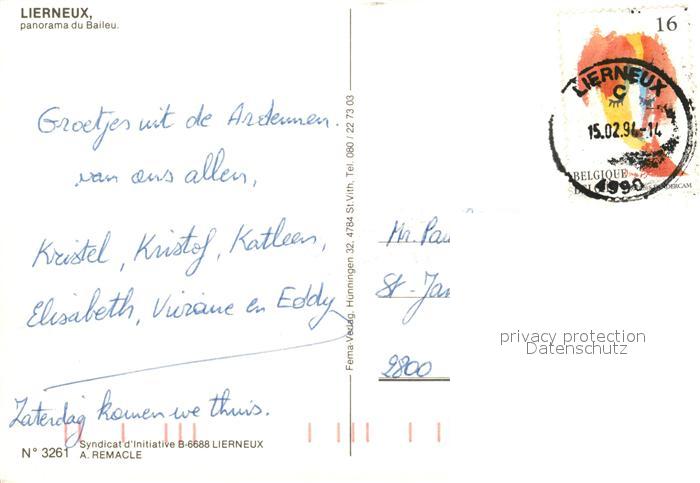 LIERNEUX,
panorama du Baileu.
Groetjes uit de Ardennen.
van ons allen,
Kristel, Kristof, Katleen,
Elisabeth, Viviane en Eddy
Zaterdag komen we thuis.
N° 3261
Syndicat d'Initiative B-6688 LIERNEUX
A. REMACLE
Fema-Verlag, Hünningen 32, 4784 St.Vith, Tel. 080 / 22 73 03
16
LIERNEUX
C
15.02.94-14
4990
BELGIQUE
Mr. Pau
St-Jan
2800
privacy protection
Datenschutz